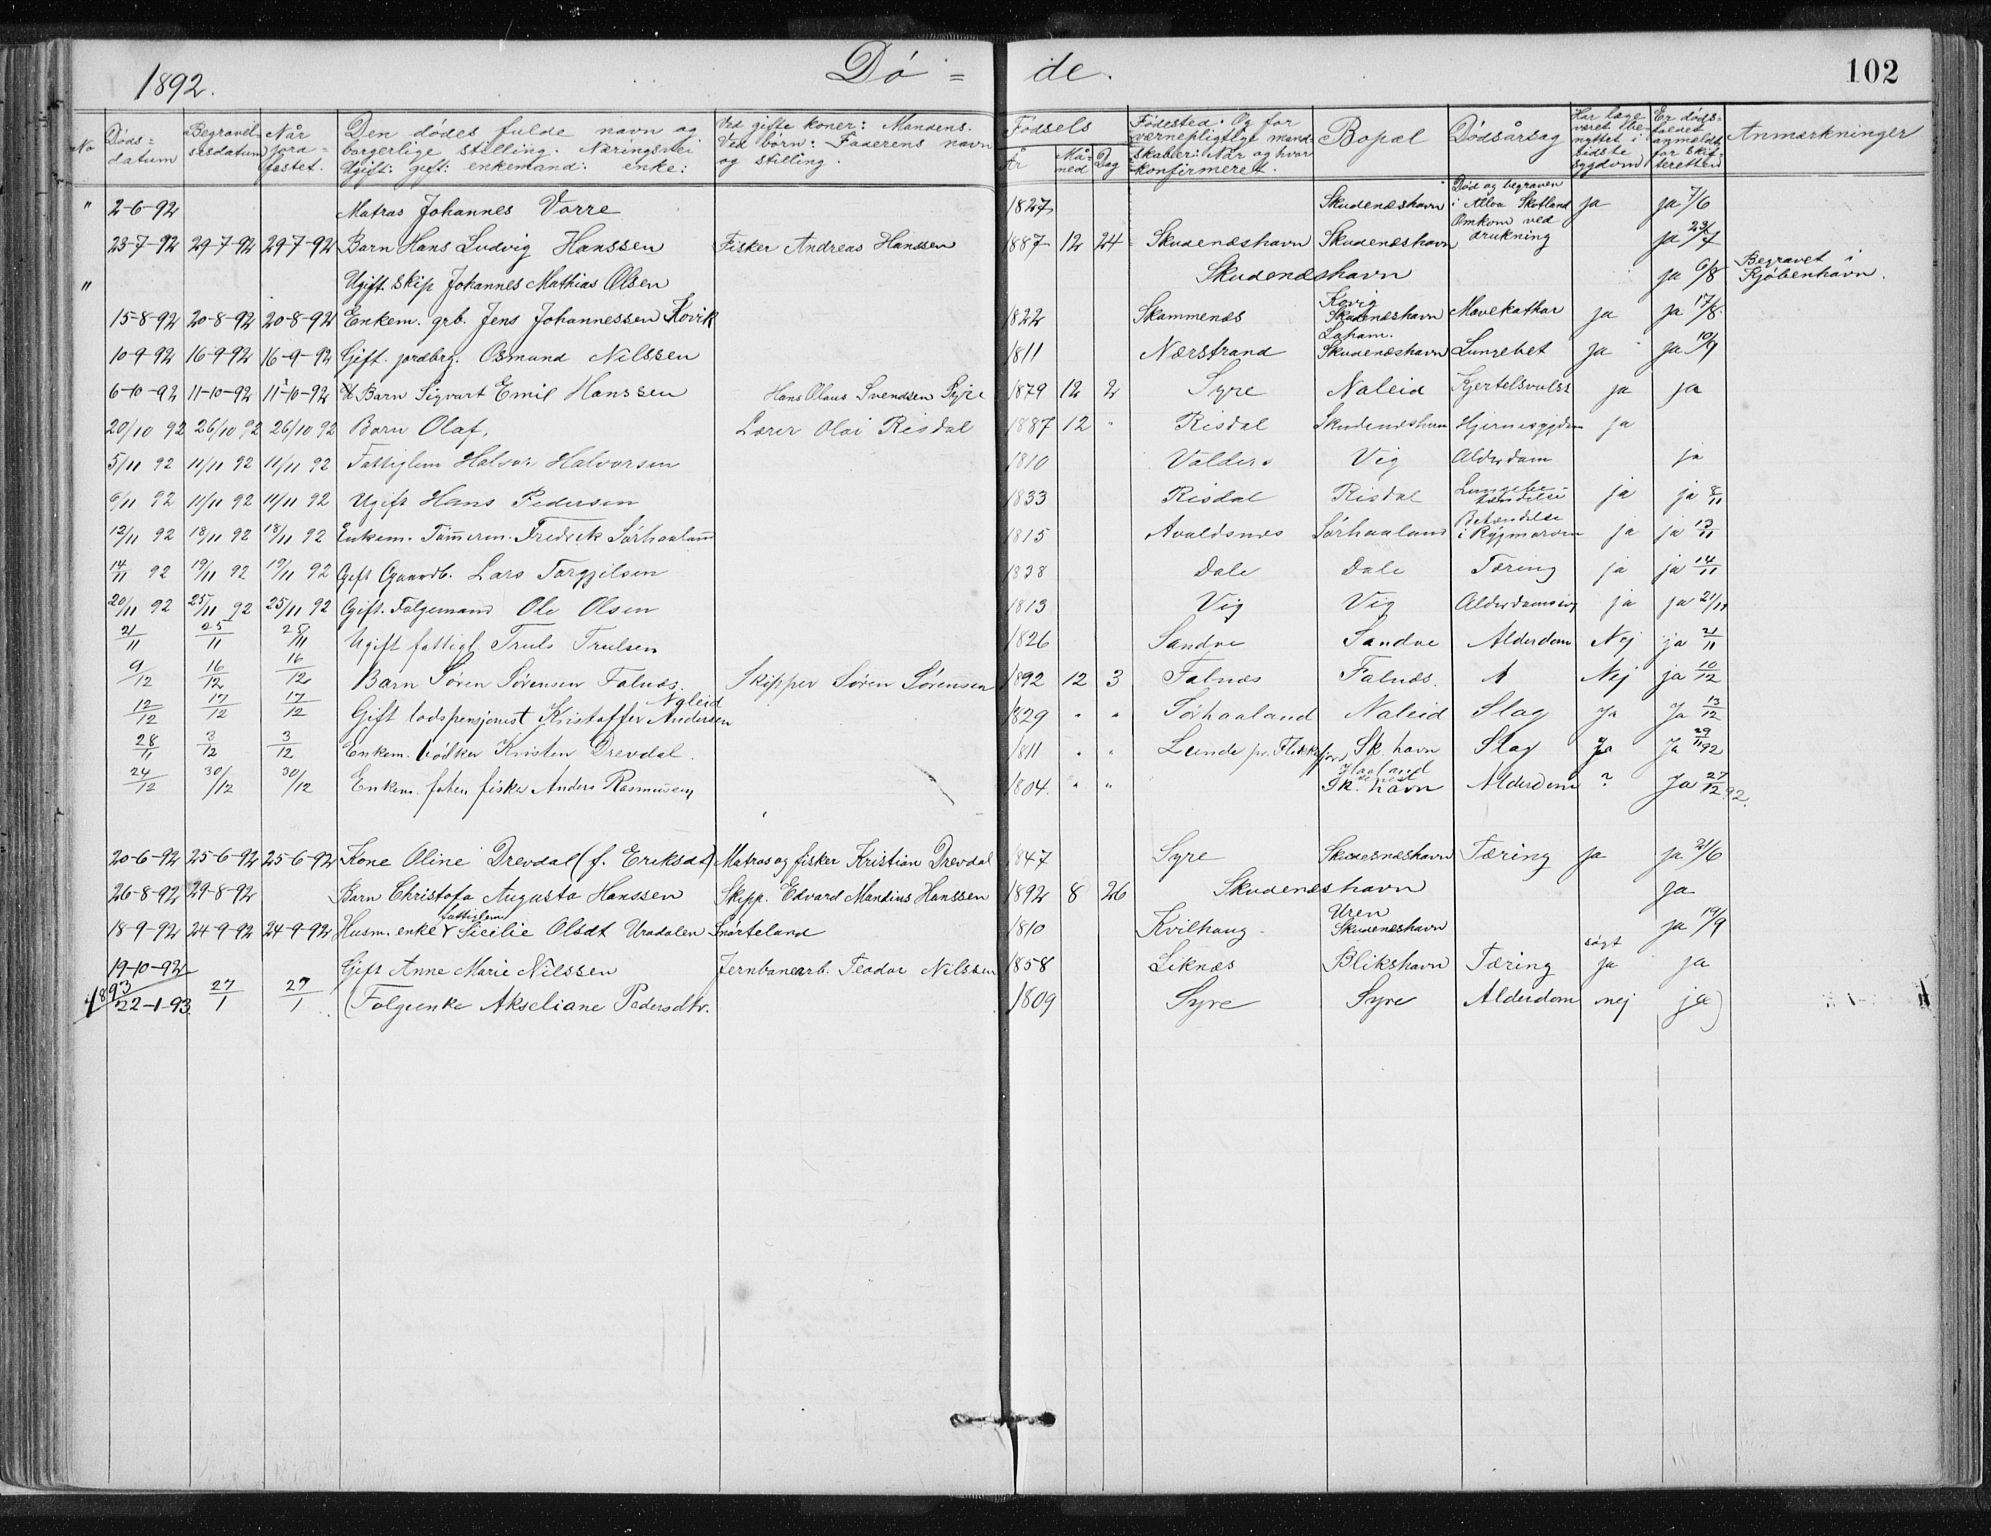 1892.
Dø = de.
102
No
Døds-datum
Begravelsesdatum
Når jordfæstet.
Den dødes fulde navn og borgerlige stilling. Næringsvei Ugift: gift: enkemand: enke:
Ved gifte koner: Mandens. Ved børn: Faderens navn og stilling.
Fødsels
År Måned Dag
Fødested. Og for værnepligtige mandskaber: Når og hvor konfirmeret.
Bopæl
Dødsårsag
Har læge været benyttet i sidste sygdom
Er dødsfaldet anmeldt for skifteretten
Anmærkninger
" 2-6-92 Matros Johannes Vorre 1827 Skudenæshavn Død og begraven i Alloa Skotland ja ja 7/6
23-7-92 29-7-92 29-7-92 Barn Hans Ludvig Hanssen Fisker Andreas Hanssen 1887 12 24 Skudenæshavn Skudenæshavn Omkom ved drukning ja 23/7
" Ugift skip Johannes Mathias Olsen Skudenæshavn ja 6/8 Begravet i Kjøbenhavn.
15-8-92 20-8-92 20-8-92 Enkem. grb. Jens Johannessen Kovik 1822 Skammenæs Kovig Skudenæshavn Mavekathar ja ja 17/8
10-9-92 16-9-92 16-9-92 Gift. jordbrg. Osmund Nilssen 1811 Nærstrand Laham. Skudenæshavn Lungebet ja ja 10/9
6-10-92 11-10-92 11-10-92 Barn Sigvart Emil Hanssen Hans Olaus Svendsen Syre 1879 12 2 Syre Naleid Kjertelsvulst ja ja
20/10 92 26/10 92 26/10 92 Barn Olaf, Lærer Olai Risdal 1887 12 " Risdal Skudenæshavn Hjernesygdom ja
5/11 92 11/11 92 11/11 92 Fattiglem Halvor Halvorsen 1810 Valders Vig Alderdom ja
6/11 92 11/11 92 11/11 92 Ugift Hans Pedersen 1833 Risdal Risdal Lungebetændelse ja ja 8/11
12/11 92 18/11 92 18/11 92 Enkem. Tømmerm. Fredrik Sørhaaland 1815 Avaldsnæs Sørhaaland Betændelse i Rygmarven ja ja 13/11
14/11 92 19/11 92 19/11 92 Gift Gaardb. Lars Torgjilsen 1838 Dale Dale Tæring ja ja 14/11
20/11 92 25/11 92 25/11 92 Gift. Folgemand Ole Olsen 1813 Vig Vig ja ja 21/11
21/11 25/11 25/11 Ugift fattigl Truls Trulsen 1826 Sandve Sandve Alderdom Nej ja 21/11
9/12 16/12 16/12 Barn Søren Sørensen Falnæs. Skipper Søren Sørensen 1892 12 3 Falnæs Falnæs. Nej ja 10/12
12/12 17/12 17/12 Gift lodspensjonist Kristoffer Andersen Naleid 1829 " " Sørhaaland Naleid Slag Ja Ja 13/12
28/11 3/12 3/12 Enkem. bødker Kristen Drevdal. 1811 " " Lunde pr. Flekkefjord Sk. havn Slag Ja Ja 29/11 92
24/12 30/12 30/12 Enkem. foten fisker Anders Rasmussen 1804. " " Sk. havn Alderdom ? Ja 27/12 92.
20-6-92 25-6-92 25-6-92 Kone Oline Drevdal (f. Eriksdt) Matros og fisker Kristian Drevdal 1847 Syre Skudesnæshavn Tæring ja ja 21/6
26-8-92 29-8-92 Barn Christofa Augusta Hanssen Skipp. Edvard Mandius Hanssen 1892 8 26 Skudenæshavn ja
18-9-92 24-9-92 24-9-92 Husm. enke & fattiglem Sicilie Olsdt Uradalen Snørteland 1810 Kvilhaug Uren Skudenæshavn ja 19/9
19-10-92 Gift Anne Marie Nilssen Jernbanearb. Teodor Nilssen 1858 Liknæs Blikshavn Tæring søgt ja ja
1893 22-1-93. 27/1 27/1 (Folgeenke Akseliane Pedersdtr. 1809 Syre Syre Alderdom nej ja)